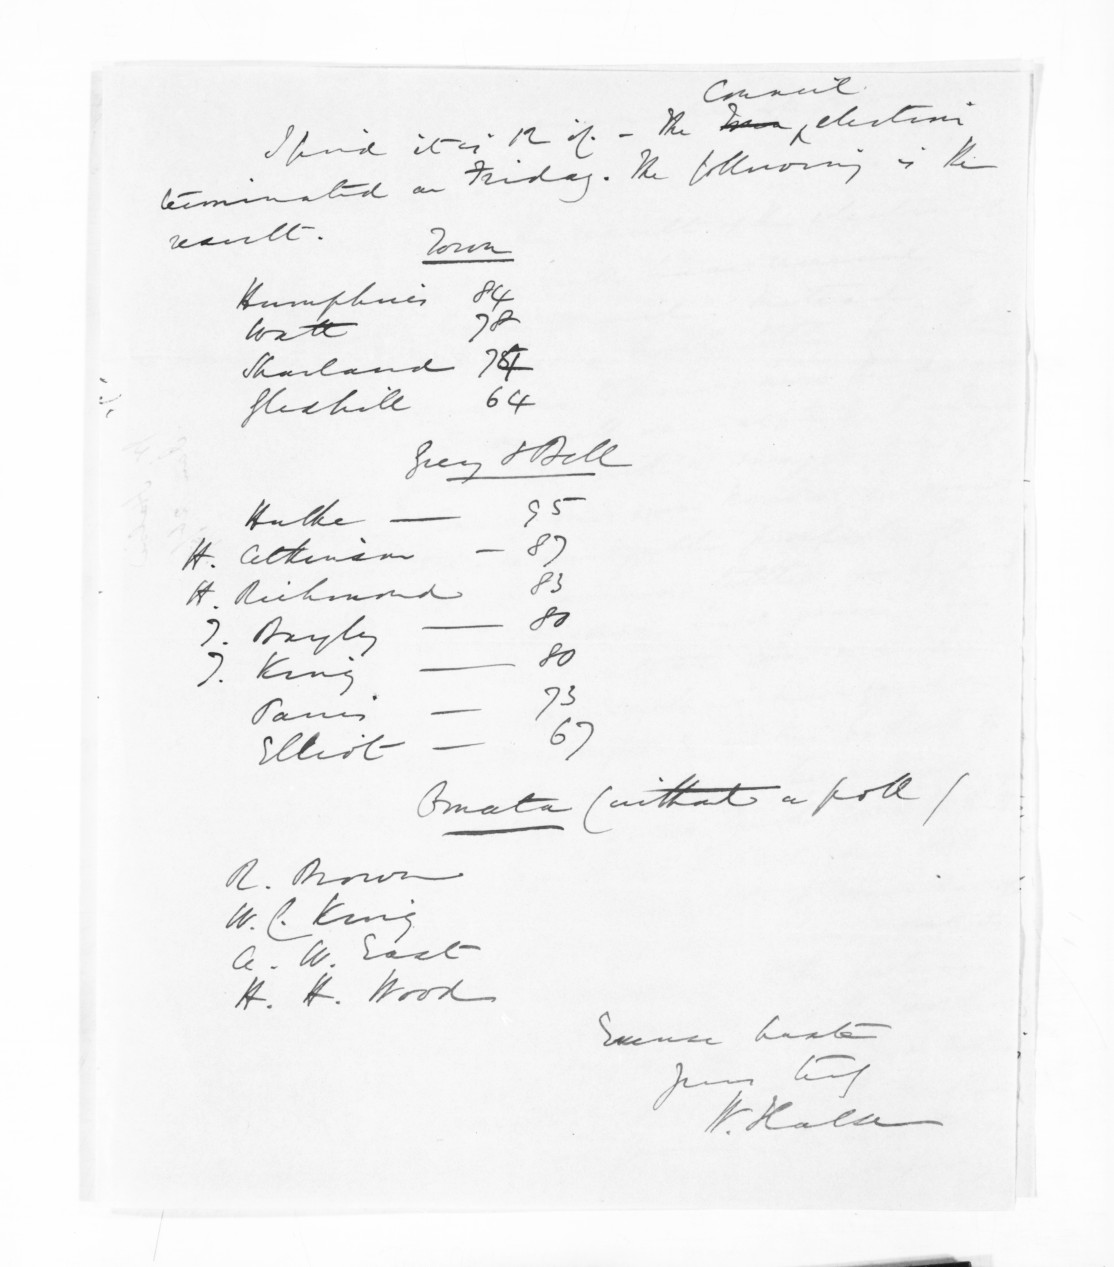 I find it is 12 o'c. - The Town Council elections
terminated on Friday. The following is the
result.
Town
Humphries 84
Watt 78
Sharland 74
Gledhill 64
Grey & Bell
Hulke — 95
H. Atkinson - 87
H. Richmond 83
T. Bayly — 80
T. King — 80
Parris - 73
Elliot - 67
Omata (without a poll)
R. Brown
W. C. King
A. W. East
H. H. Wood
Excuse haste
Yours truly
W. Halse